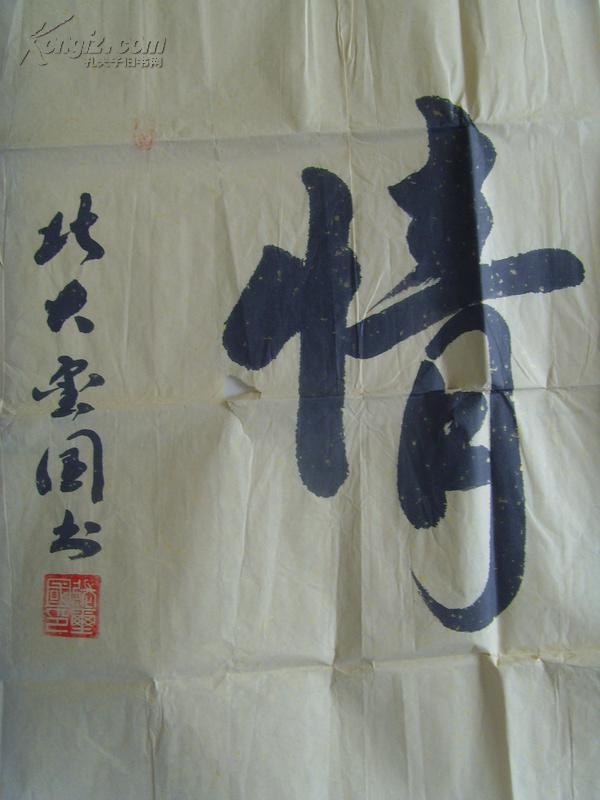 Kongfz.com
孔夫子旧书网
情
北大
国书